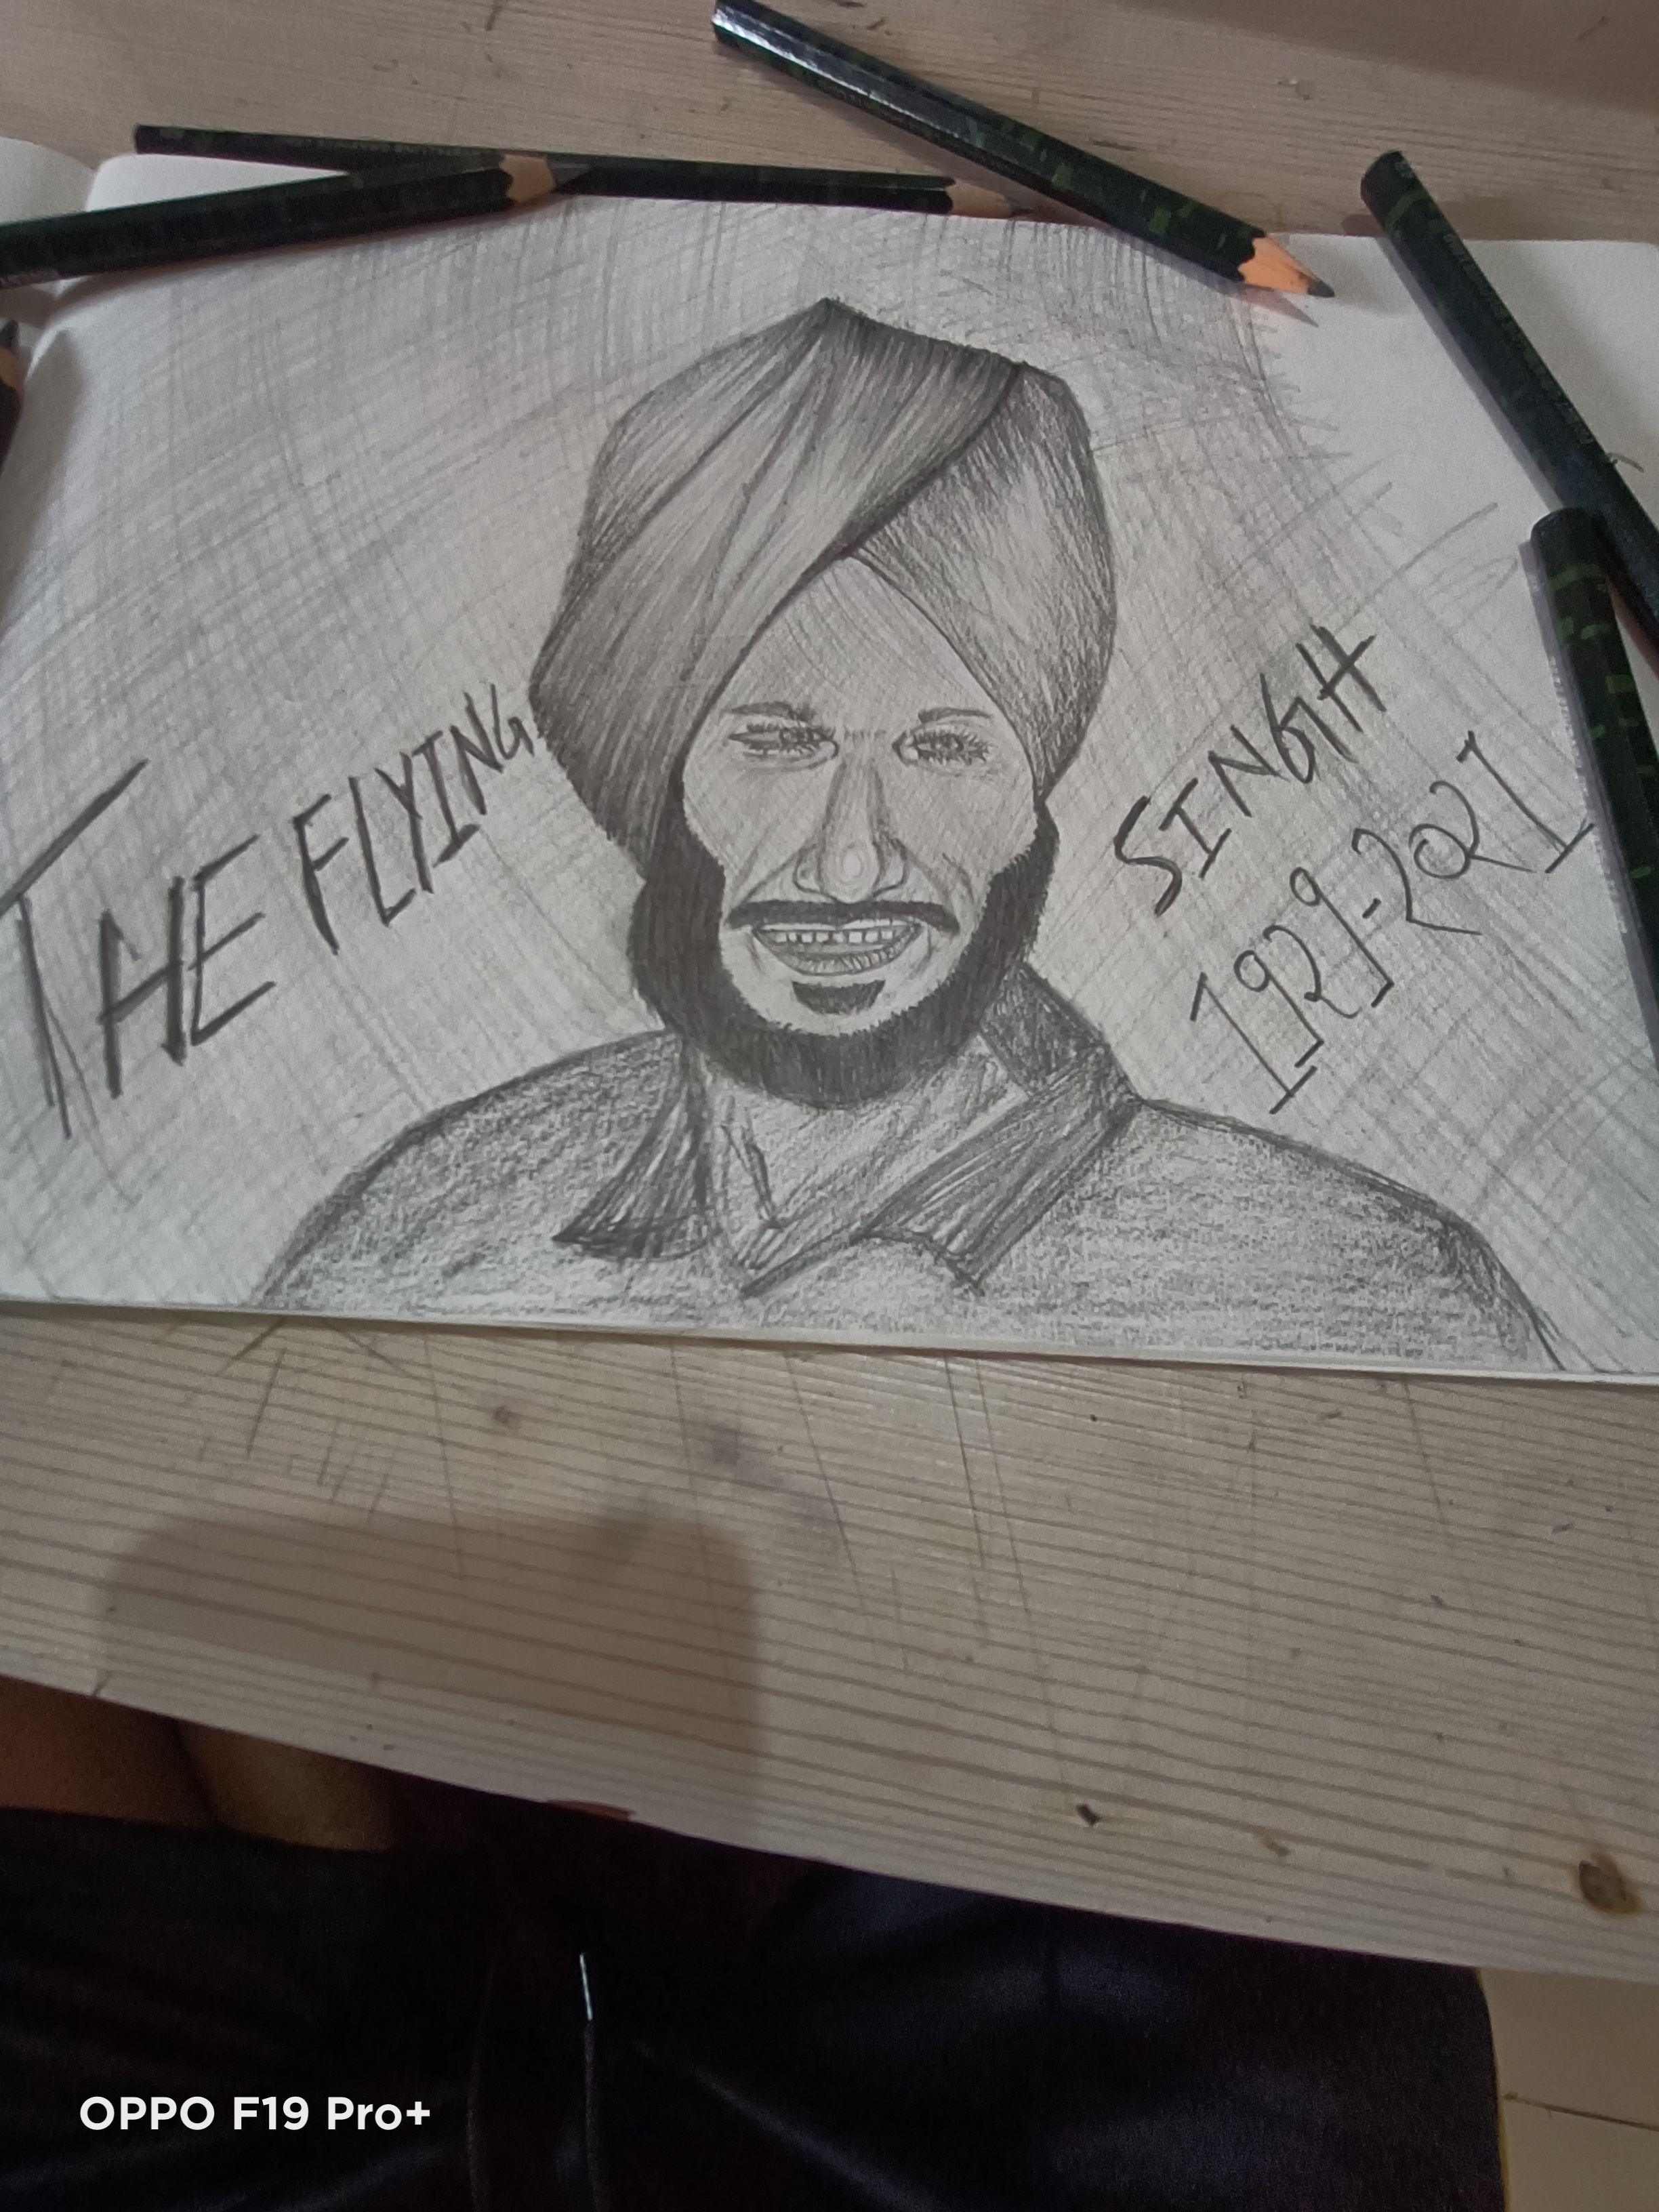 THE FLYING SINGH
1929-2021
OPPO F19 Pro+